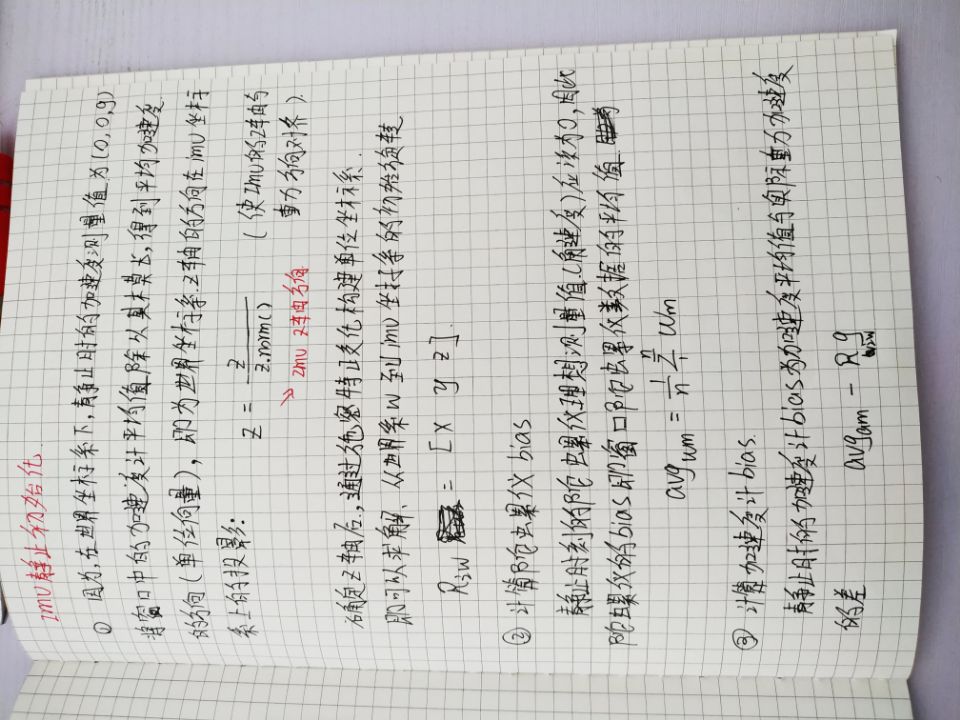 imu静止初始化
① 因为,在世界坐标系下,静止时的加速度测量值为(0,0,g)
将窗口中的加速度计平均值除以其模长,得到平均加速度
的方向(单位向量),即为世界坐标系z轴的方向在imu坐标
系上的投影:
z = z / z.norm() (使Imu的z轴与
重力方向对齐)
↘ imu z轴方向
确定z轴后,通过施密特正交化构建单位坐标系.
即可以求解、从世界系w到imu坐标系的初始旋转
R = [x y z].
② 计算陀螺仪bias
静止时刻的陀螺仪理想测量值(角速度)应该为0,因此
陀螺仪的bias即窗口陀螺仪数据的平均值.
avg = 1/n Σ wm
③ 计算加速度计bias.
静止时的加速度计bias为加速度平均值与实际重力加速度
的差 avgam - R g